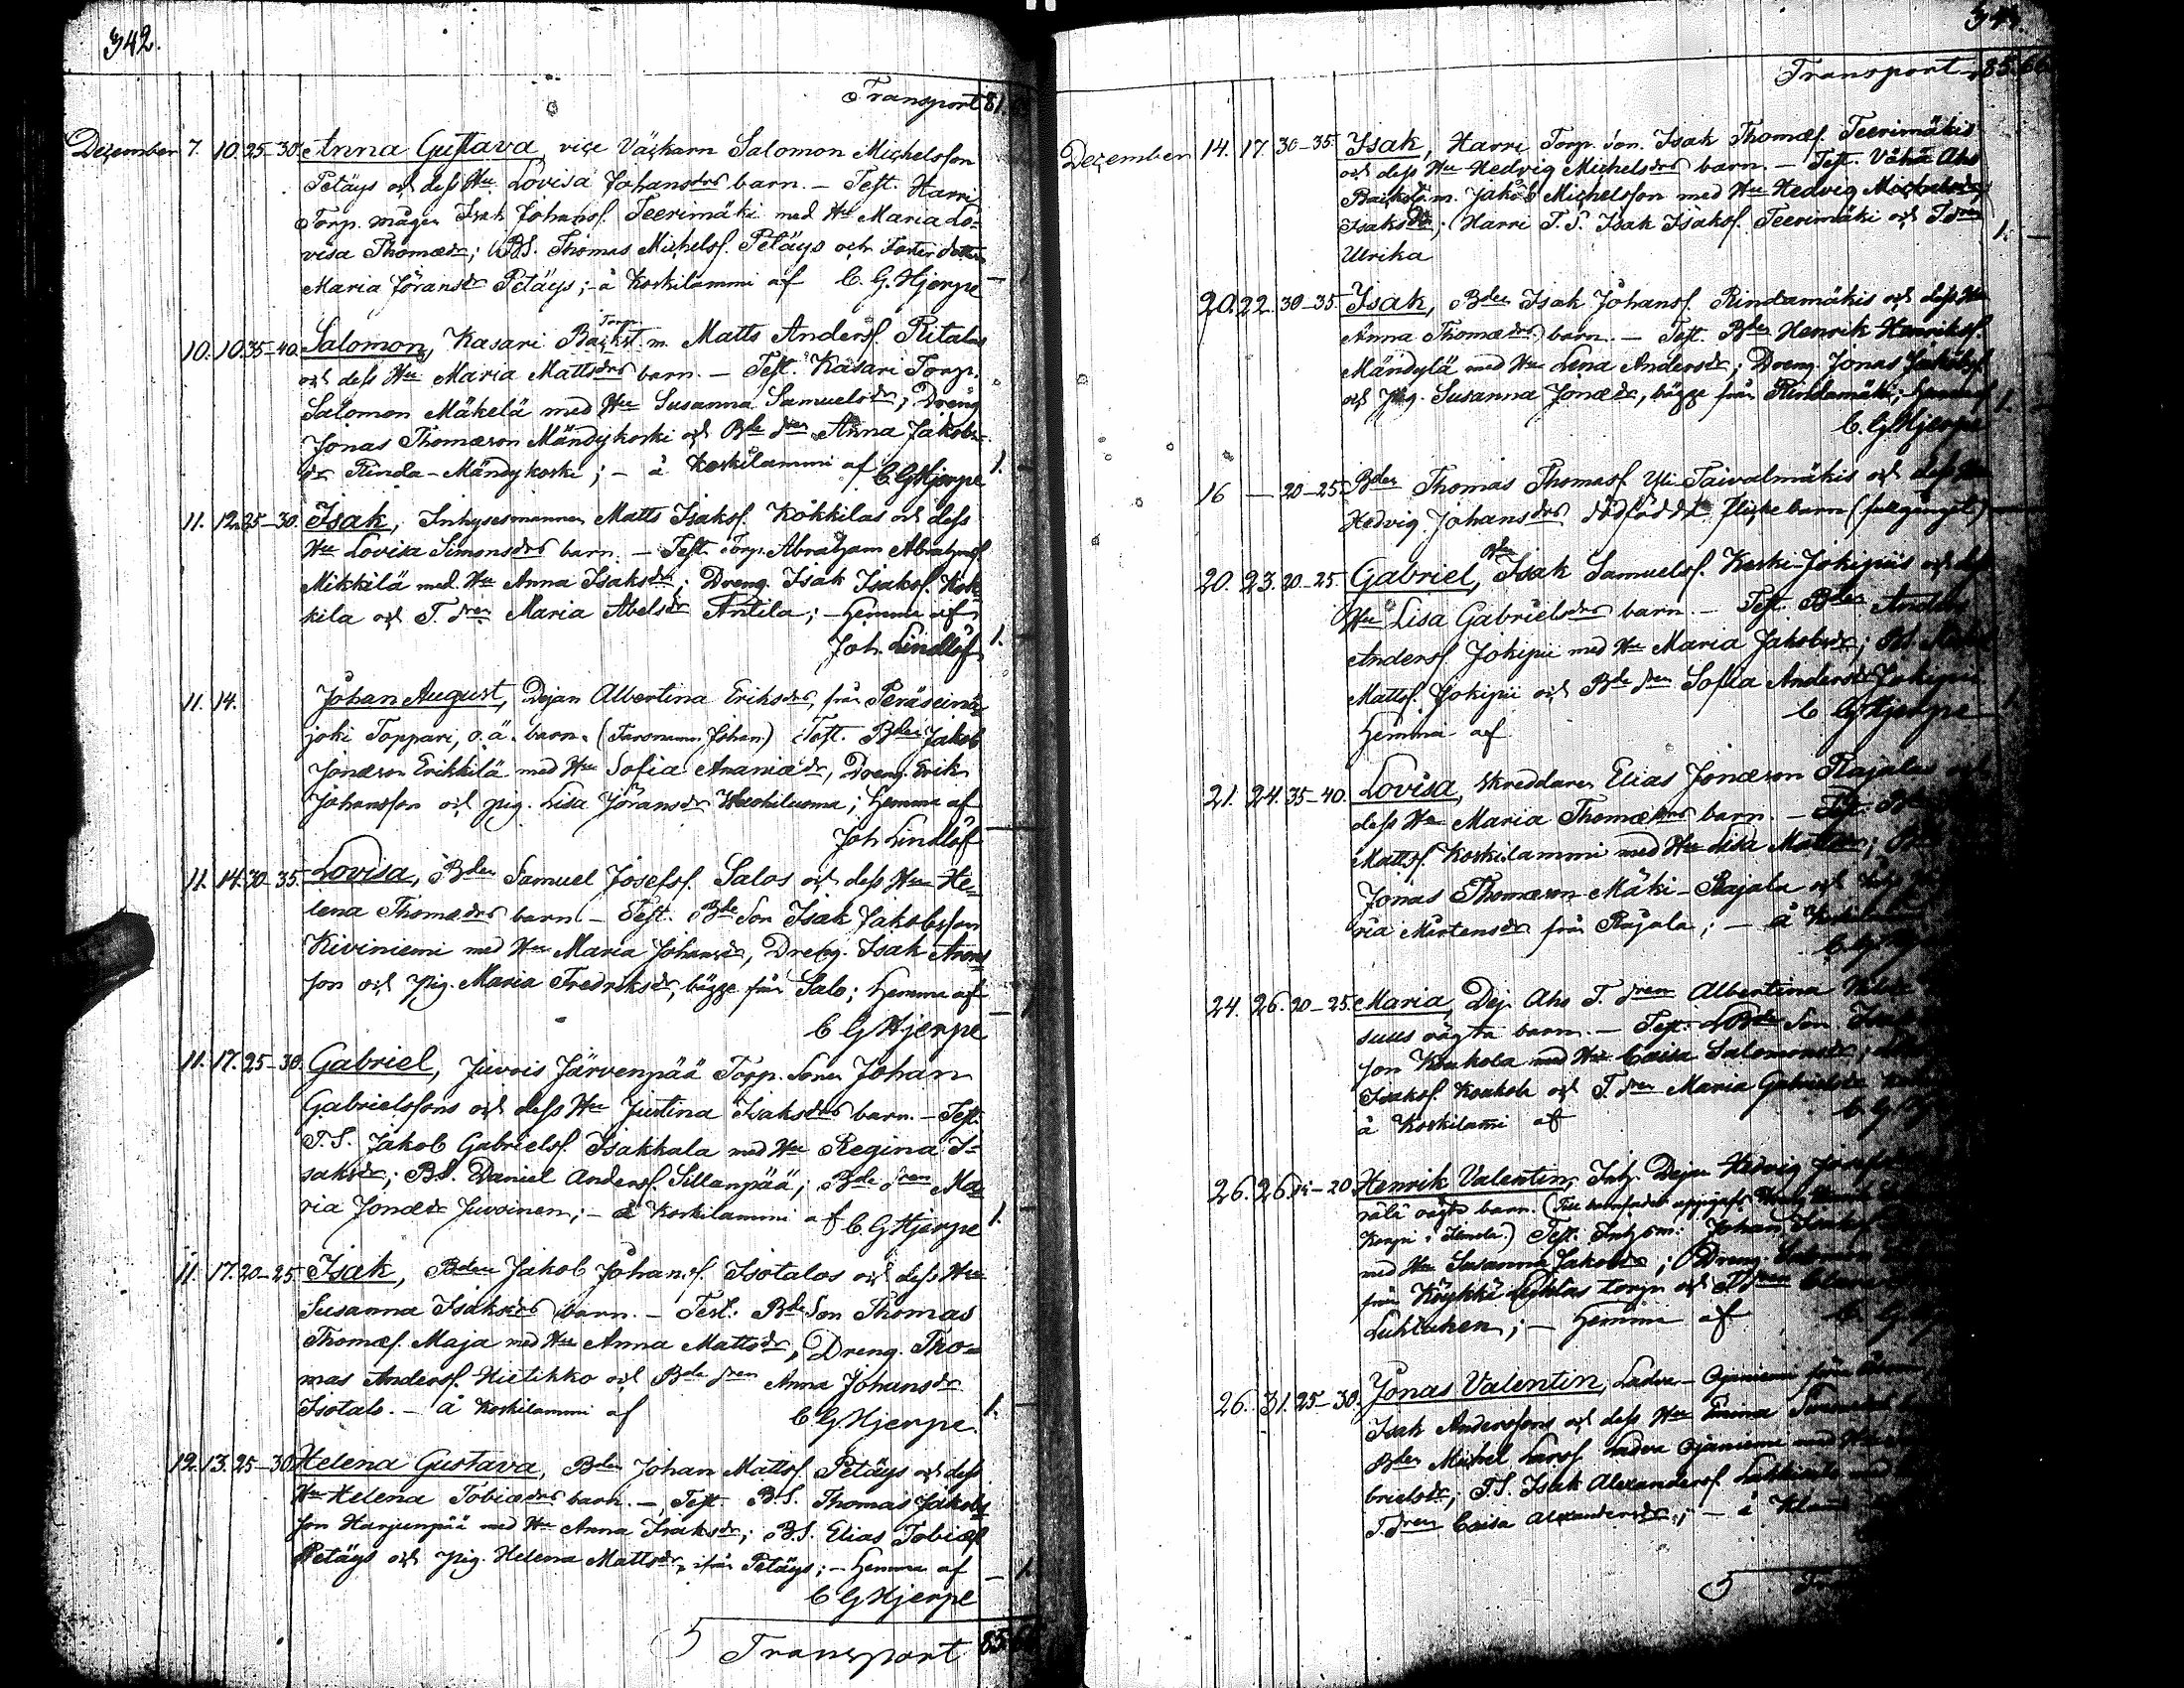 342.
Transport 81.
December 7. 10. 25-30. Anna Gustava, vice Väckarn Salomon Michelsson
Petäys och dess Hu Lovisa Johansdrs barn. - Test. Harri
Torp. mågen Isak Johansf. Teerimäki med Hu Maria Lo-
visa Thomædr; BS. Thomas Michelsf. Petäys och Foster dottern
Maria Göransdr Petäys; - å Koskilammi af C. G. Hjerpe - 1.
10. 10. 35-40. Salomon, Kasari Backst. m. Torp. Matts Andersf. Ritalas
och dess Hu Maria Mattsdrs barn. - Test. Kasari Torp.
Salomon Mäkelä med Hu Susanna Samuelsdr; Dreng
Jonas Thomæson Mändykoski och Bde dren Anna Jakobs-
dr Rinda-Mändykoski; - å Koskilammi af C G Hjerpe 1. -
11. 12. 25-30. Isak, Inhysesmannen Matts Isaksf. Kokkilas och dess
Hu Lovisa Simonsdrs barn. - Test. Torp. Abraham Abrahamsf
Mikkilä med Hu Anna Isaksdr; Dreng. Isak Isaksf. Kok-
kila och T. dren Maria Abelsdr Antila; - hemma af
Joh. Lindlöf 1. -
11. 14. Johan August, Dejan Albertina Eriksdrs, från Peräseinä-
joki Toppari, o.ä. barn. (Farsnamn Johan.) Test. Bden Jakob
Jonæson Erikkilä med Hu Sofia Ananiædr, Dreng. Erik
Johansson och pig. Lisa Jöransdr Haskiluoma; hemma af
Joh Lindlöf
11. 14. 30-35. Lovisa, Bden Samuel Josefsf. Salos och dess Hu He-
lena Thomædrs barn. - Test. Bde Son Isak Jakobsson
Kiviniemi med Hu Maria Johansdr, Dreng. Isak Arons-
son och pig. Maria Fredriksdr, bägge från Salo; hemma af
C G Hjerpe - 1
11. 17. 25-30. Gabriel, Juvois Järvenpää Torp. Sonen Johan
Gabrielssons och dess Hu Justina Isaksdrs barn. - Test.
T.S. Jakob Gabrielsf. Isakkala med Hu Regina I-
saksdr; B.S. Daniel Andersf. Sillanpää; Bde dren Ma-
ria Jonædr Juvoinen; - å Koskilammi af C. G Hjerpe 1. -
11. 17. 20-25. Isak, Bden Jakob Johansf. Isotalos och dess Hu
Susanna Isaksdrs barn. - Test. Bde Son Thomas
Thomæf. Maja med Hu Anna Mattsdr, Dreng. Tho-
mas Andersf. Hietikko och Bde dren Anna Johansdr
Isotalo. - å Koskilammi af C G Hjerpe. 1. -
12. 13. 25-30. Helena Gustava, Bden Johan Mattsf. Petäys och dess
Hu Helena Tobiædrs barn. - Test. B.S. Thomas Jakobs-
son Harjunpää med Hu Anna Isaksdr; B.S. Elias Tobiæf.
Petäys och pig. Helena Mattsdr, ifrån Petäys; - hemma af
C G Hjerpe - 1.
Transport 85
Transport 85. 66
December 14. 17. 30-35. Isak, Harri Torp. Son. Isak Thomæf. Teerimäkis
och dess Hu Hedvig Michelsdrs barn. - Test. Vähä Aho
Backst. m. Jakob Michelsson med Hu Hedvig
Isaksdr; Harri T.S. Isak Isaksf. Teerimäki och T dren
Ulrika 1. -
20. 22. 30-35. Isak, Bden Isak Johansf. Rindamäkis och dess Hu
Anna Thomædrs barn. - Test. Bden Henrik Henriksf.
Mändylä med Hu Lena Andersdr; Dreng. Jonas Jakobsf.
och pig. Susanna Jonædr, bägge från Rindamäki; hemma af 1. -
C. G Hjerpe
16 - 20-25. Bden Thomas Thomasf Yli-Taivalmäkis och dess Hu
Hedvig Johansdrs dödfödda flickebarn (fullgånget) -
20. 23. 20-25. Gabriel, Isak Samuelsf. Keski-Jokipiis och dess
Hu Lisa Gabrielsdrs barn. - Test. Bden Anders
Andersf. Jokipii med Hu Maria Jakobsdr; BS.
Mattsf. Jokipii och Bde dren Sofia Andersdr Jokipii
hemma af C G Hjerpe 1.
21. 24. 35-40. Lovisa, skreddaren Elias Jonæson Rajalas och
dess Hu Maria Thomædrs barn. - Test.
Mattsf. Koskilammi med Hu Lisa Mattsdr;
Jonas Thomæson Mäki-Rajala och
ria Mårtensdr från Rajala; - å
C. G
24. 26. 20-25. Maria, Dej. Aho T. dren Albertina
suus oägta barn. - Test. Son
son Koukola med Hu Caisa Salomonsdr;
Isaksf. Koukola och T. dren Maria Gabrielsdr
å Koskilami af C. G
26. 26. 15-20. Henrik Valentin, Inh. Dejan Hedvig
oägta barn. Test. Johan
med Hu Susanna Jakobsdr; Dreng.
från Köykkä torp och
Luhtanen; - hemma af C G
26. 31. 25-30. Jonas Valentin, Ladva-Ojaniemi från
Isak Anderssons och dess Hu
Bden Michel Larsf Ladva Ojaniemi med Hu
brielsdr; T.S. Isak Alexandersf.
T. dren Caisa Alexandersdr; - å